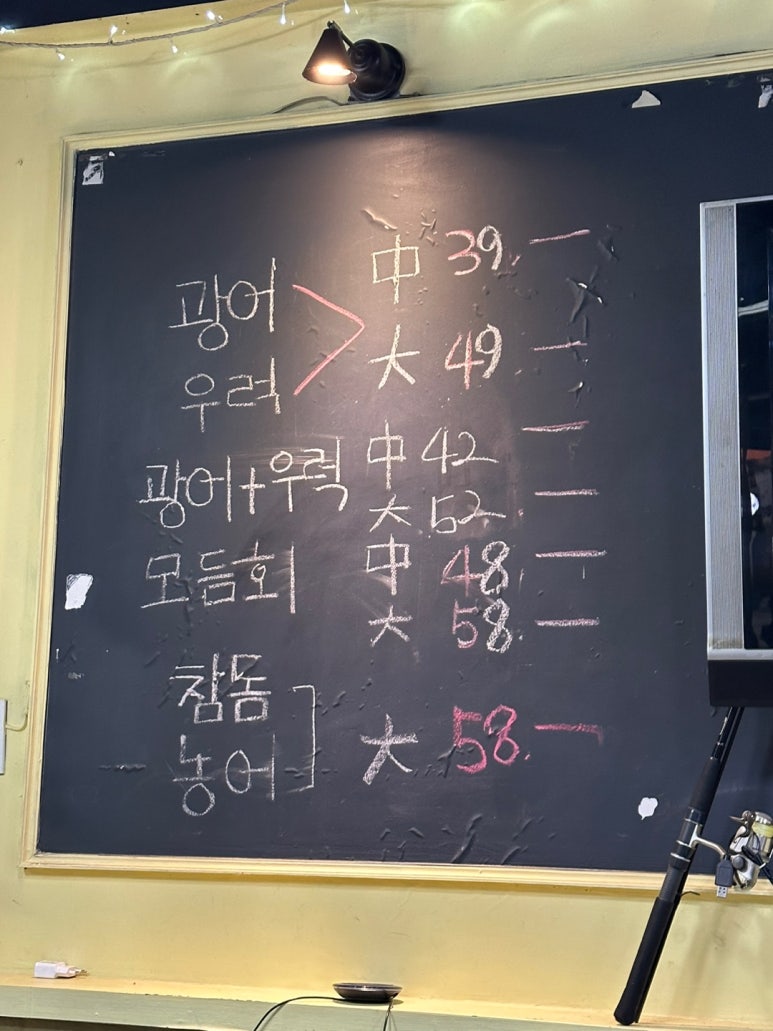 광어 中 39.—
우럭 大 49 —
광어+우럭 中 42 —
大 52 —
모듬회 中 48 —
大 58 —
참돔
농어 大 58.—